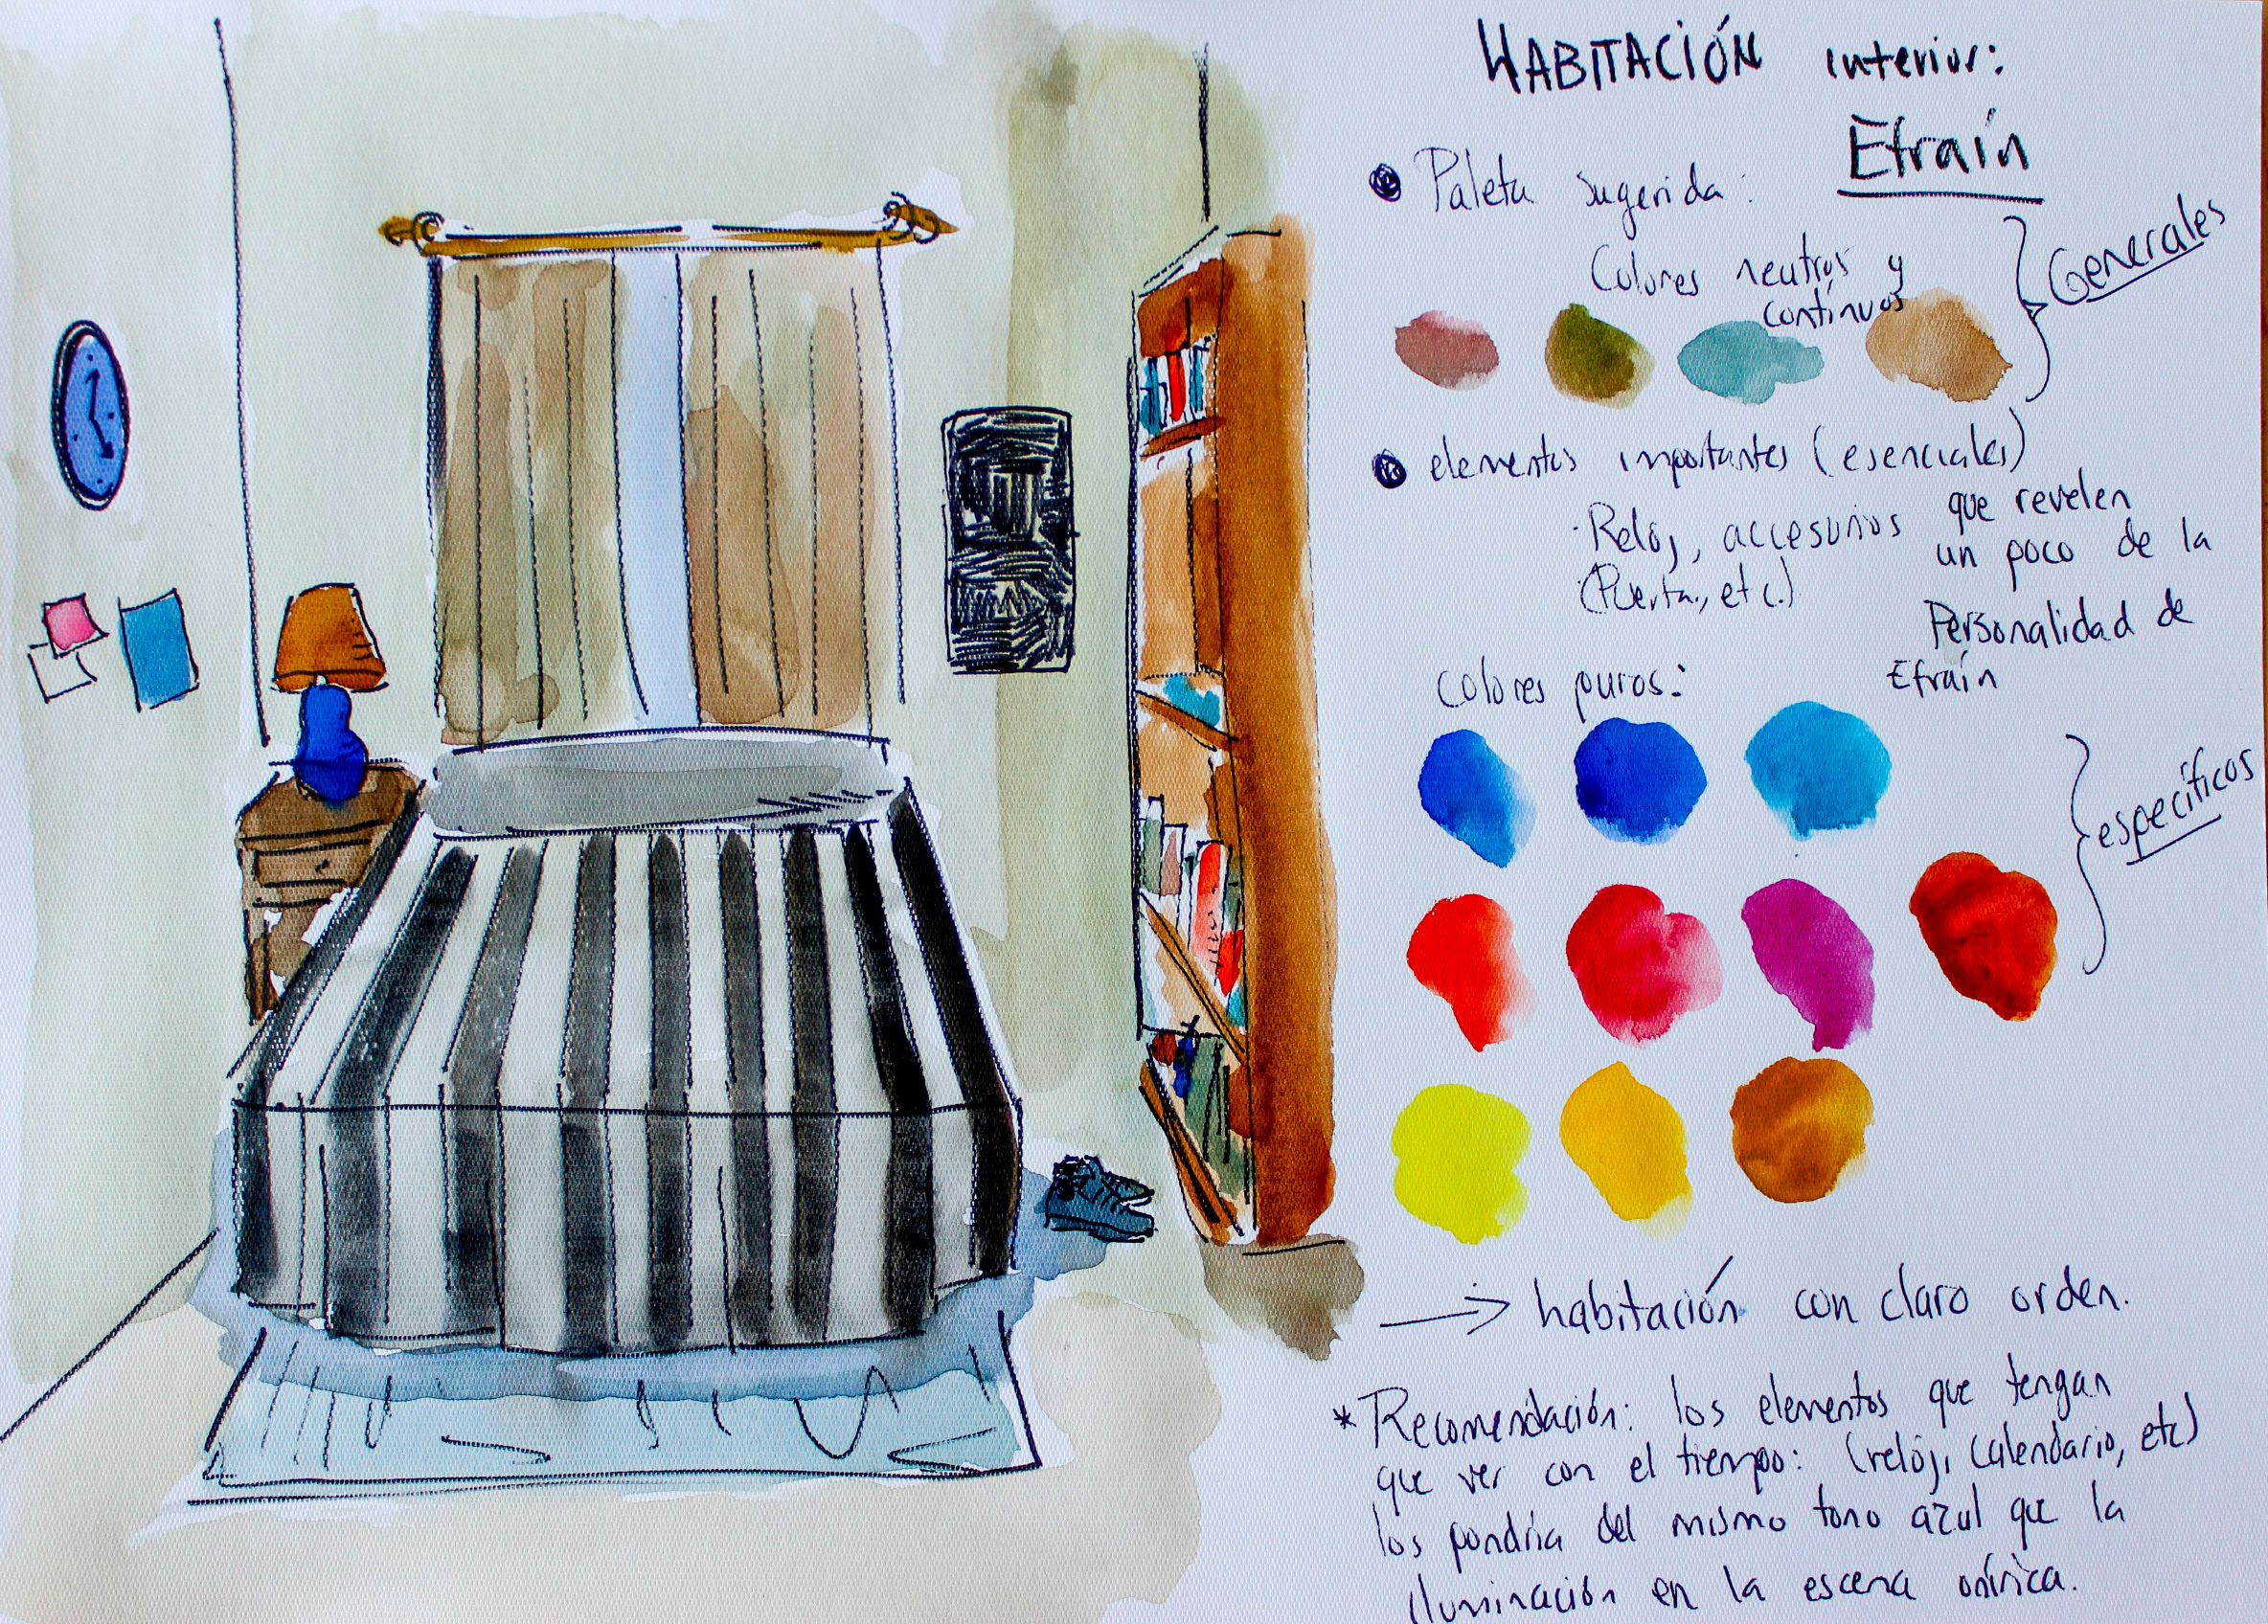 HABITACIÓN interior:
Efraín
Paleta sugerida:
Colores neutros y
contínuos
Generales
elementos importantes (esenciales)
·Reloj, accesorios que revelen
(Puerta, etc.) un poco de la
Personalidad de
Efraín
Colores puros:
específicos
→ habitación con claro orden.
* Recomendación: los elementos que tengan
que ver con el tiempo: (reloj, calendario, etc)
los pondría del mismo tono azul que la
iluminación en la escena onírica.